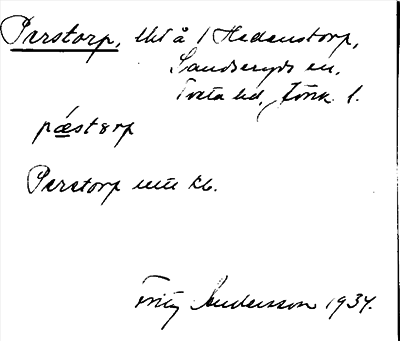 Perstorp, lht å 1 Hedenstorp,
Sandseryds sn,
Tveta hd, Jönk. l.
pæ̀storp
Perstorp uttt kb.
Fritz Andersson 1934.